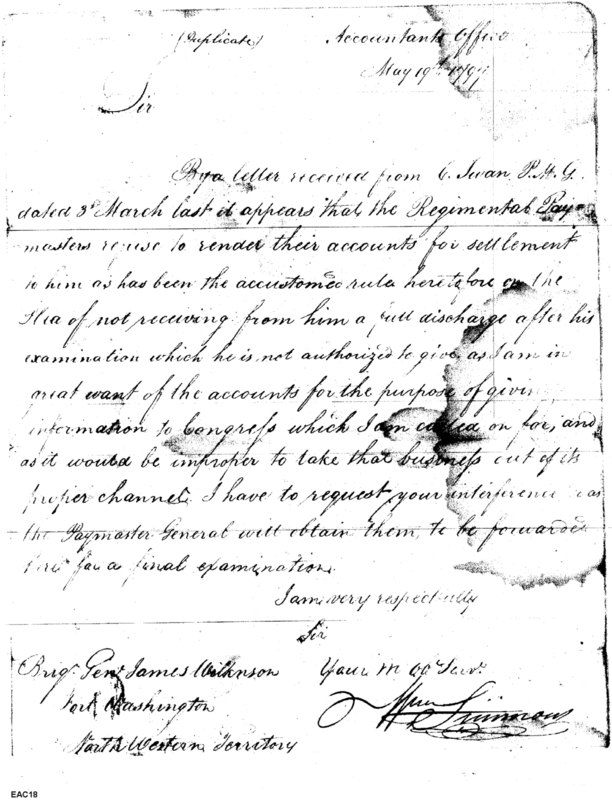 (Duplicate) Accountants Office
May 19th 1797
Sir
By a letter received from C. Swan, P.M.G.
dated 3d March last it appears that the Regimental Pay=
masters refuse to render their accounts for settlement
to him as has been the accustomed rule heretofore on the
Plea of not receiving from him a full discharge after his
examination which he is not authorized to give, as I am in
great want of the accounts for the purpose of givin
information to Congress which I am called on for, and
as it would be improper to take that business out of its
proper channel I have to request your interference as
the Paymaster General will obtain them, to be forwarded
here for a final examination.
I am very respectfully
Sir
Brigr. Genl. James Wilkinson Your m Ob Servt.
Fort Washington Wm Simmons
North Western Territory
EAC18